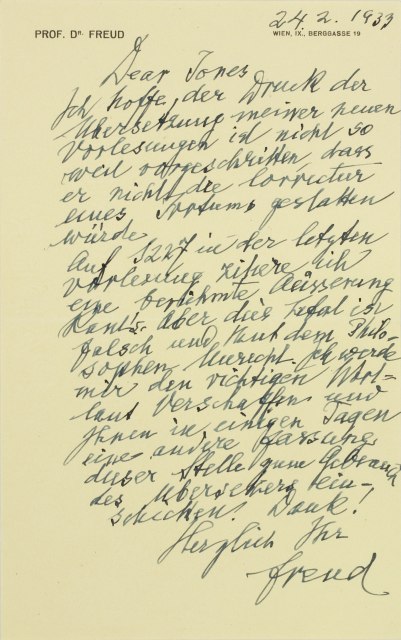 24.2.1933
PROF. DR. FREUD
WIEN, IX., BERGGASSE 19
Dear Jones
Ich hoffe, der Druck der
Übersetzung meiner neuen
Vorlesungen ist nicht so
weit vorgeschritten dass
er nicht die Correctur
eines Irrtums gestatten
würde
Auf S 227 in der letzten
Vorlesung zitire ich
eine berühmte Äusserung
Kant's. Aber dies ist
falsch und thut dem Philo-
sophen Unrecht. Ich werde
mir den richtigen Wort-
laut verschaffen und
Ihnen in einigen Tagen
eine andere Fassung
dieser Stelle zum Gebrauch
des Übersetzers ein-
schicken. Dank!
Herzlich Ihr
Freud